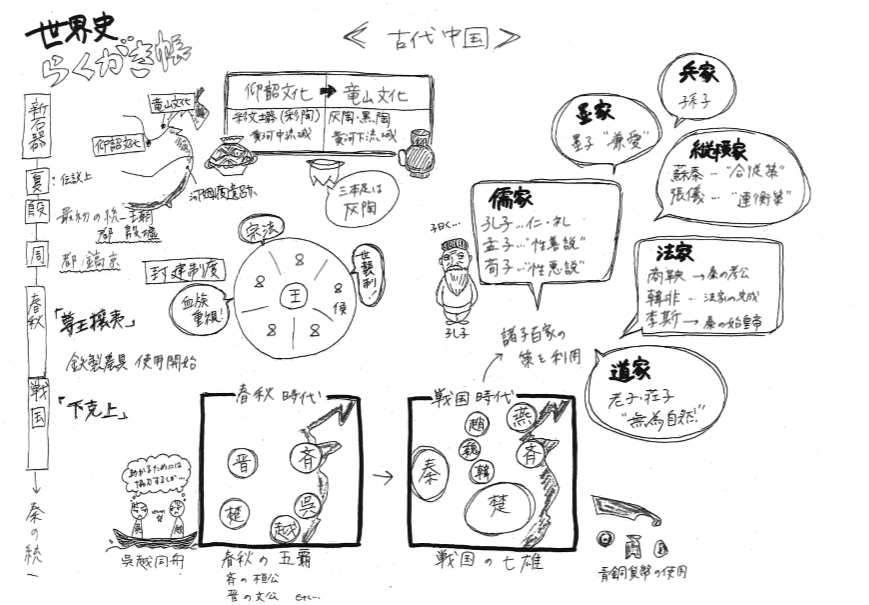 世界史
らくがき帳
≪ 古代中国 ≫
新石器
夏:伝説上
殷
最初の統一王朝
都 殷墟
周
都 鎬京
春秋
「尊王攘夷」
鉄製農具 使用開始
戦国
「下克上」
→ 秦の統一
竜山文化
仰韶文化
河姆渡遺跡
仰韶文化 ➡ 竜山文化
彩文土器(彩陶)
黄河中流域
灰陶・黒陶
黄河下流域
三本足は
灰陶
封建制度
宗法
世襲制!
血族
重視!
王
侯
子曰く…
孔子
兵家
孫子
墨家
墨子 "兼愛"
縦横家
蘇秦 … "合従策"
張儀 … "連衡策"
儒家
孔子…仁・礼
孟子…"性善説"
荀子…"性悪説"
法家
商鞅 → 秦の孝公
韓非 … 法家の完成
李斯 → 秦の始皇帝
道家
老子・荘子
"無為自然!"
諸子百家の
策を利用
春秋時代
晋
斉
楚
呉
越
春秋の五覇
斉の桓公
晋の文公 etc…
戦国時代
燕
趙
斉
魏
秦
韓
楚
戦国の七雄
助かるためには
協力するしか…
呉
越
呉越同舟
青銅貨幣の使用